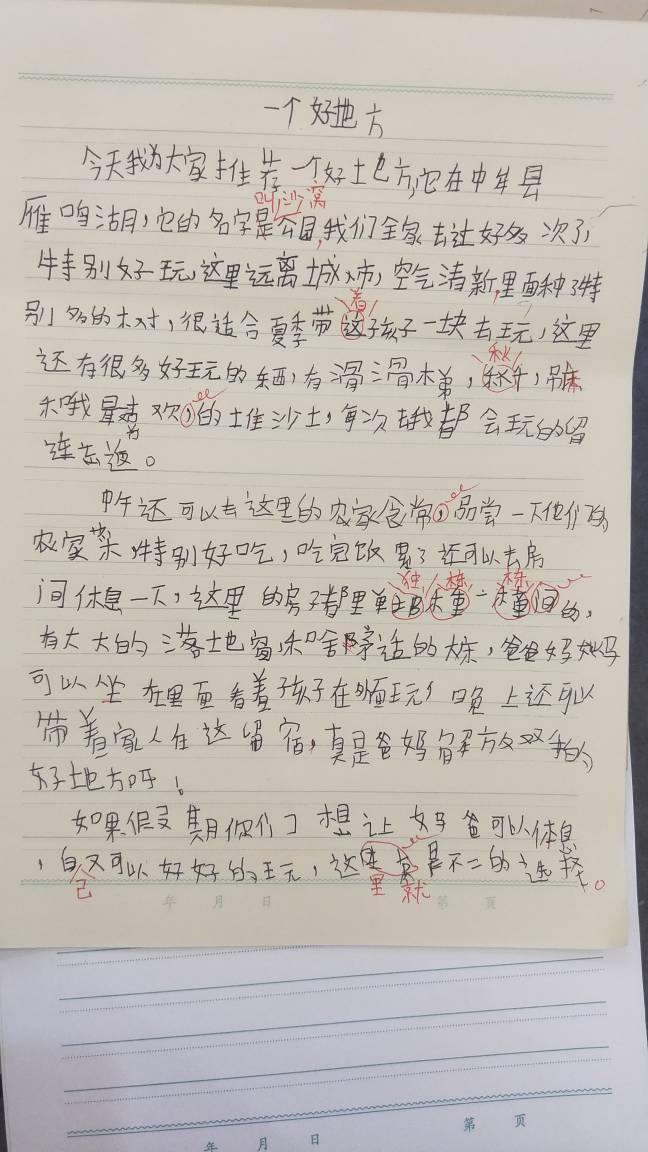 一个好地方
今天我为大家推荐一个好地方,它在中牟县
叫沙窝
雁鸣湖,它的名字是公园,我们全家去过好多次了,
特别好玩,这里远离城市,空气清新,里面种了特
着
别多的树,很适合夏季带这子孩子一块去玩,这里
秋
还有很多好玩的东西,有滑滑梯,秋千,
和我最喜欢,的堆沙土,每次去我都会玩的留
连忘返。
中午还可以去这里的农家食常,品尝一下他们的
农家菜,特别好吃,吃完饭累了还可以去房
独 栋 栋
间休息一下,这里的房子都里单一间的,
有大大的落地窗和舒适的大床,爸爸妈妈
可以坐在里面看着孩子在外面玩,晚上还可以
带着家人在这留宿,真是爸妈解放双手的
好地方呀!
如果假期你们想让妈爸可以休息
,自又可以好好的玩,这是不二的选择。
己 里 就
年 月 日 第 页
年 月 日 第 页